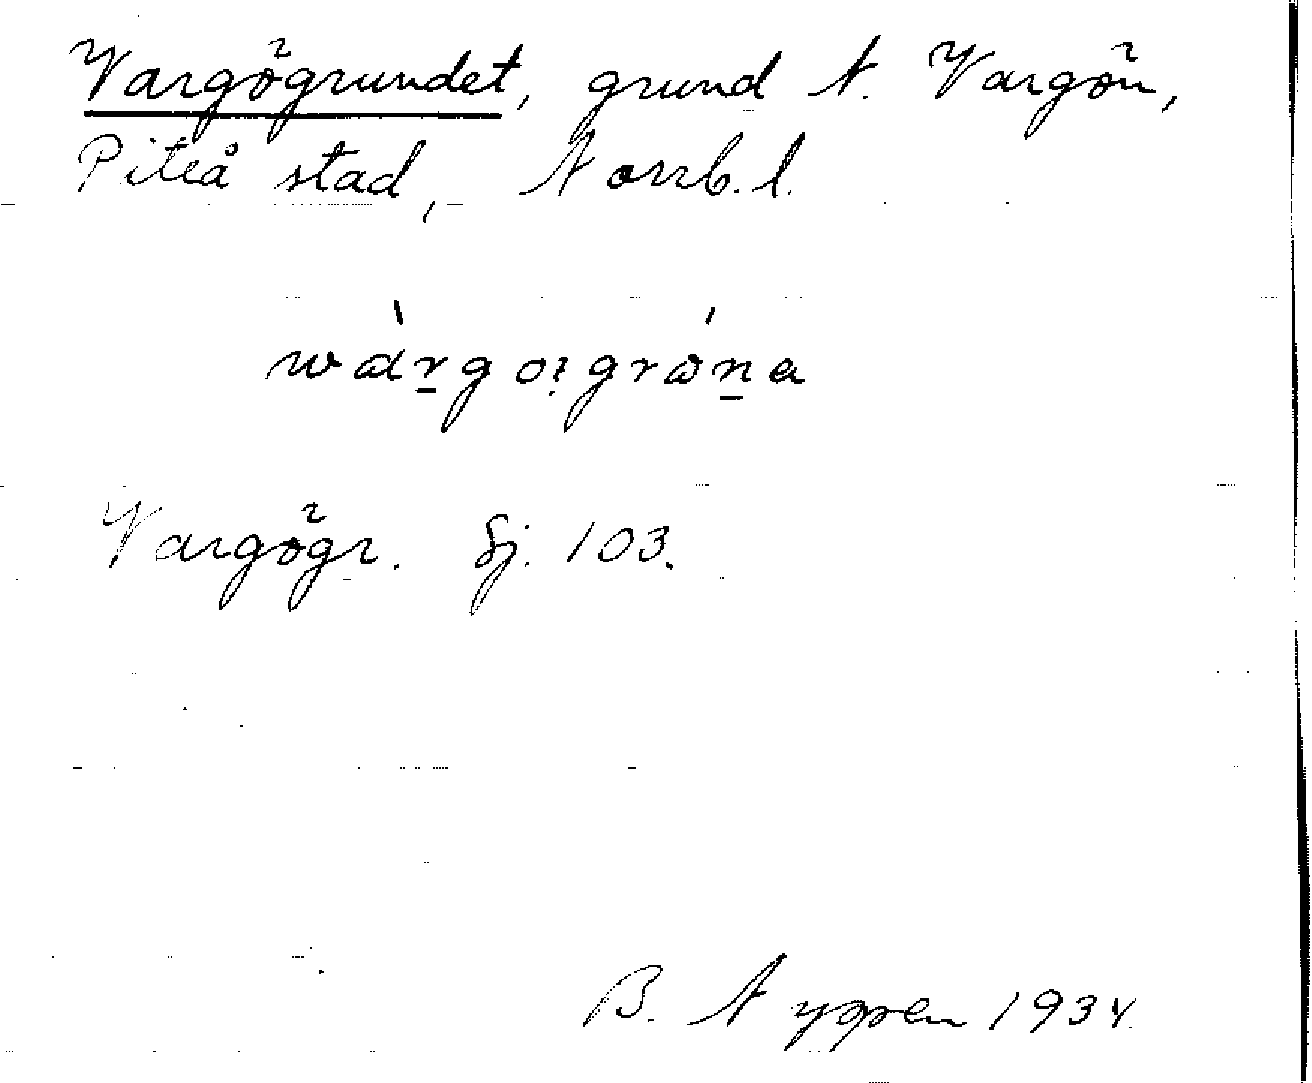 Vargögrundet, grund N. Vargön,
Piteå stad, Norrb. l.
Vargögr. Sj. 103.
B. Nygren 1934.